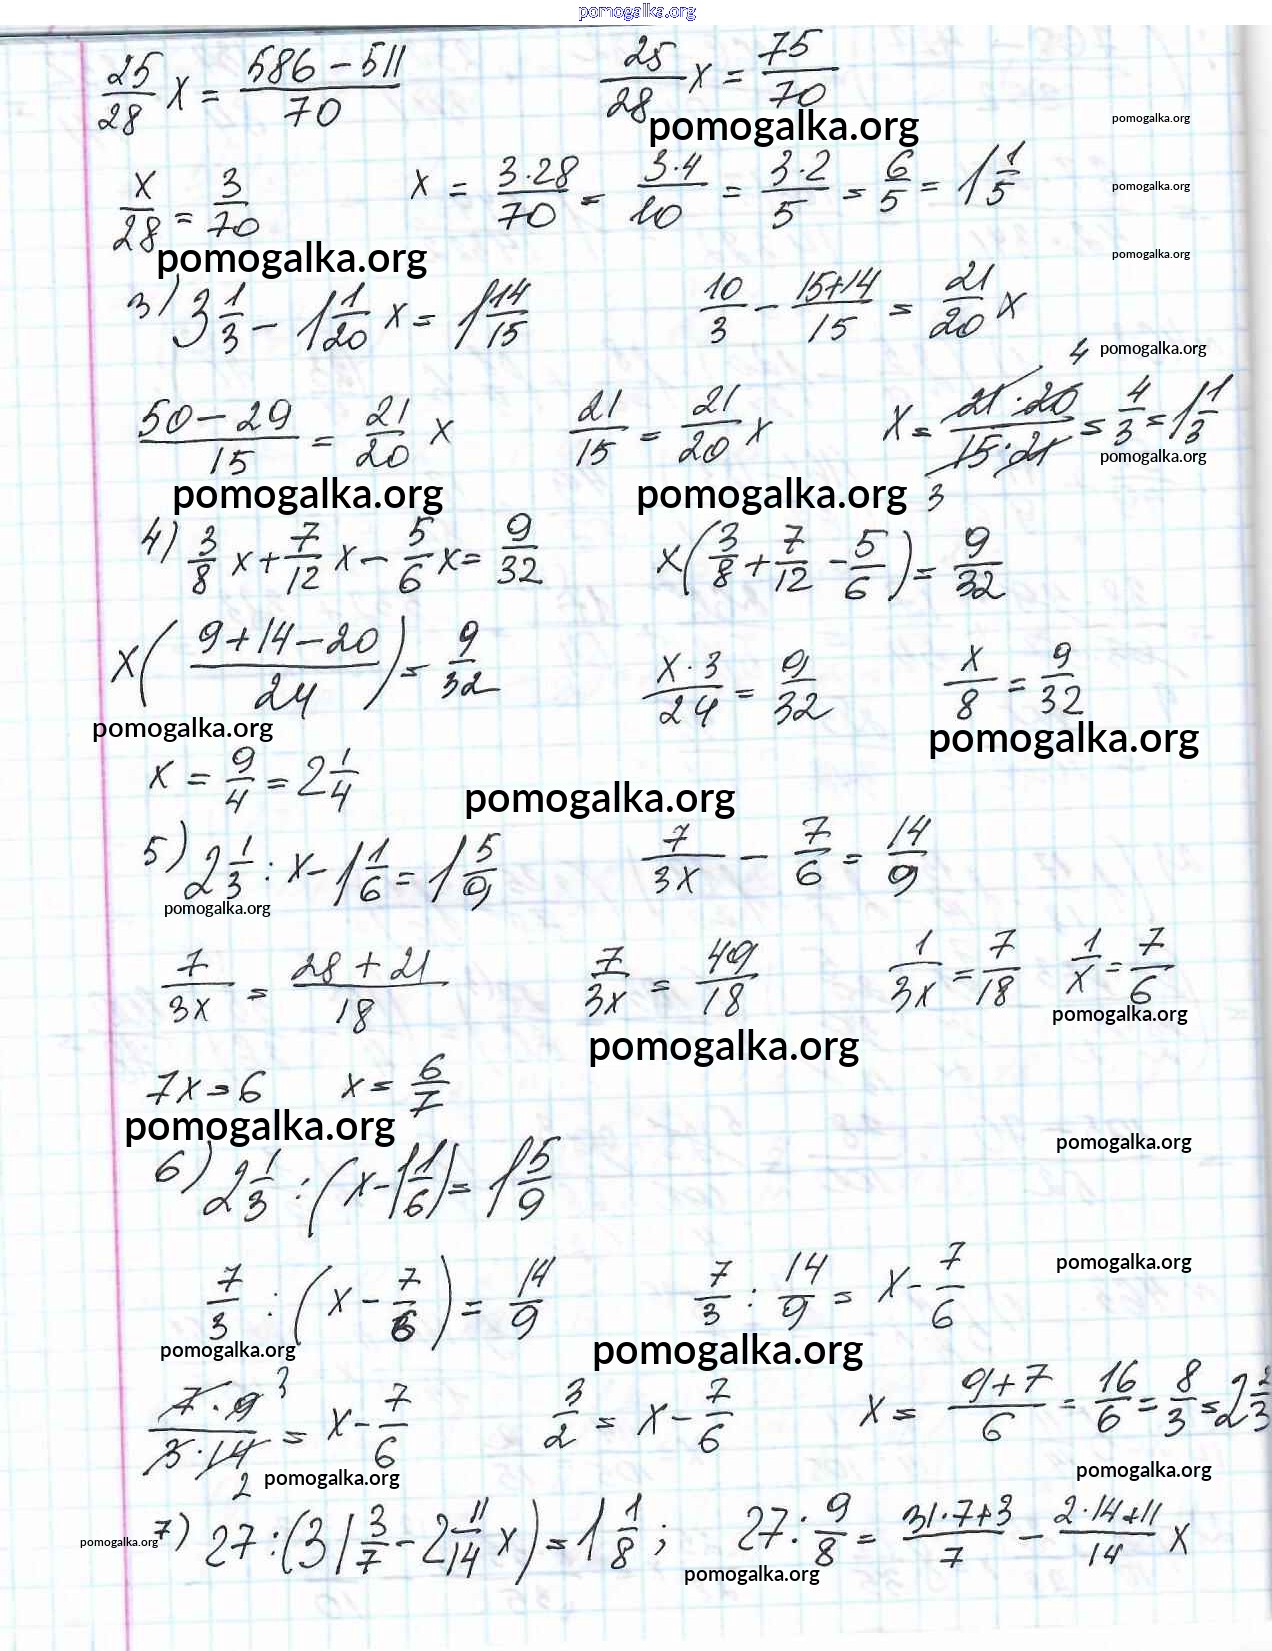 pomogalka.org
25/28 x = (586 − 511)/70    25/28 x = 75/70
pomogalka.org pomogalka.org
x/28 = 3/70    x = (3·28)/70 = (3·4)/10 = (3·2)/5 = 6/5 = 1 1/5
pomogalka.org
pomogalka.org pomogalka.org
3) 3 1/3 − 1 1/20 x = 1 14/15    10/3 − (15+14)/15 = 21/20 x
pomogalka.org
(50 − 29)/15 = 21/20 x    21/15 = 21/20 x    x = (21·20 4)/(15·21 3) = 4/3 = 1 1/3
pomogalka.org
pomogalka.org pomogalka.org
4) 3/8 x + 7/12 x − 5/6 x = 9/32    x(3/8 + 7/12 − 5/6) = 9/32
x((9 + 14 − 20)/24) = 9/32    (x·3)/24 = 9/32    x/8 = 9/32
pomogalka.org pomogalka.org
x = 9/4 = 2 1/4
pomogalka.org
5) 2 1/3 : x − 1 1/6 = 1 5/9    7/3x − 7/6 = 14/9
pomogalka.org
7/3x = (28 + 21)/18    7/3x = 49/18    1/3x = 7/18    1/x = 7/6
pomogalka.org
pomogalka.org
7x = 6    x = 6/7
pomogalka.org pomogalka.org
6) 2 1/3 : (x − 1 1/6) = 1 5/9
7/3 : (x − 7/6) = 14/9    7/3 : 14/9 = x − 7/6
pomogalka.org
pomogalka.org pomogalka.org
(7·9 3)/(3·14 2) = x − 7/6    3/2 = x − 7/6    x = (9+7)/6 = 16/6 = 8/3 = 2 2/3
pomogalka.org pomogalka.org
7) 27 : (31 3/7 − 2 11/14 x) = 1 1/8 ;    27 : 9/8 = (31·7+3)/7 − (2·14+11)/14 x
pomogalka.org pomogalka.org